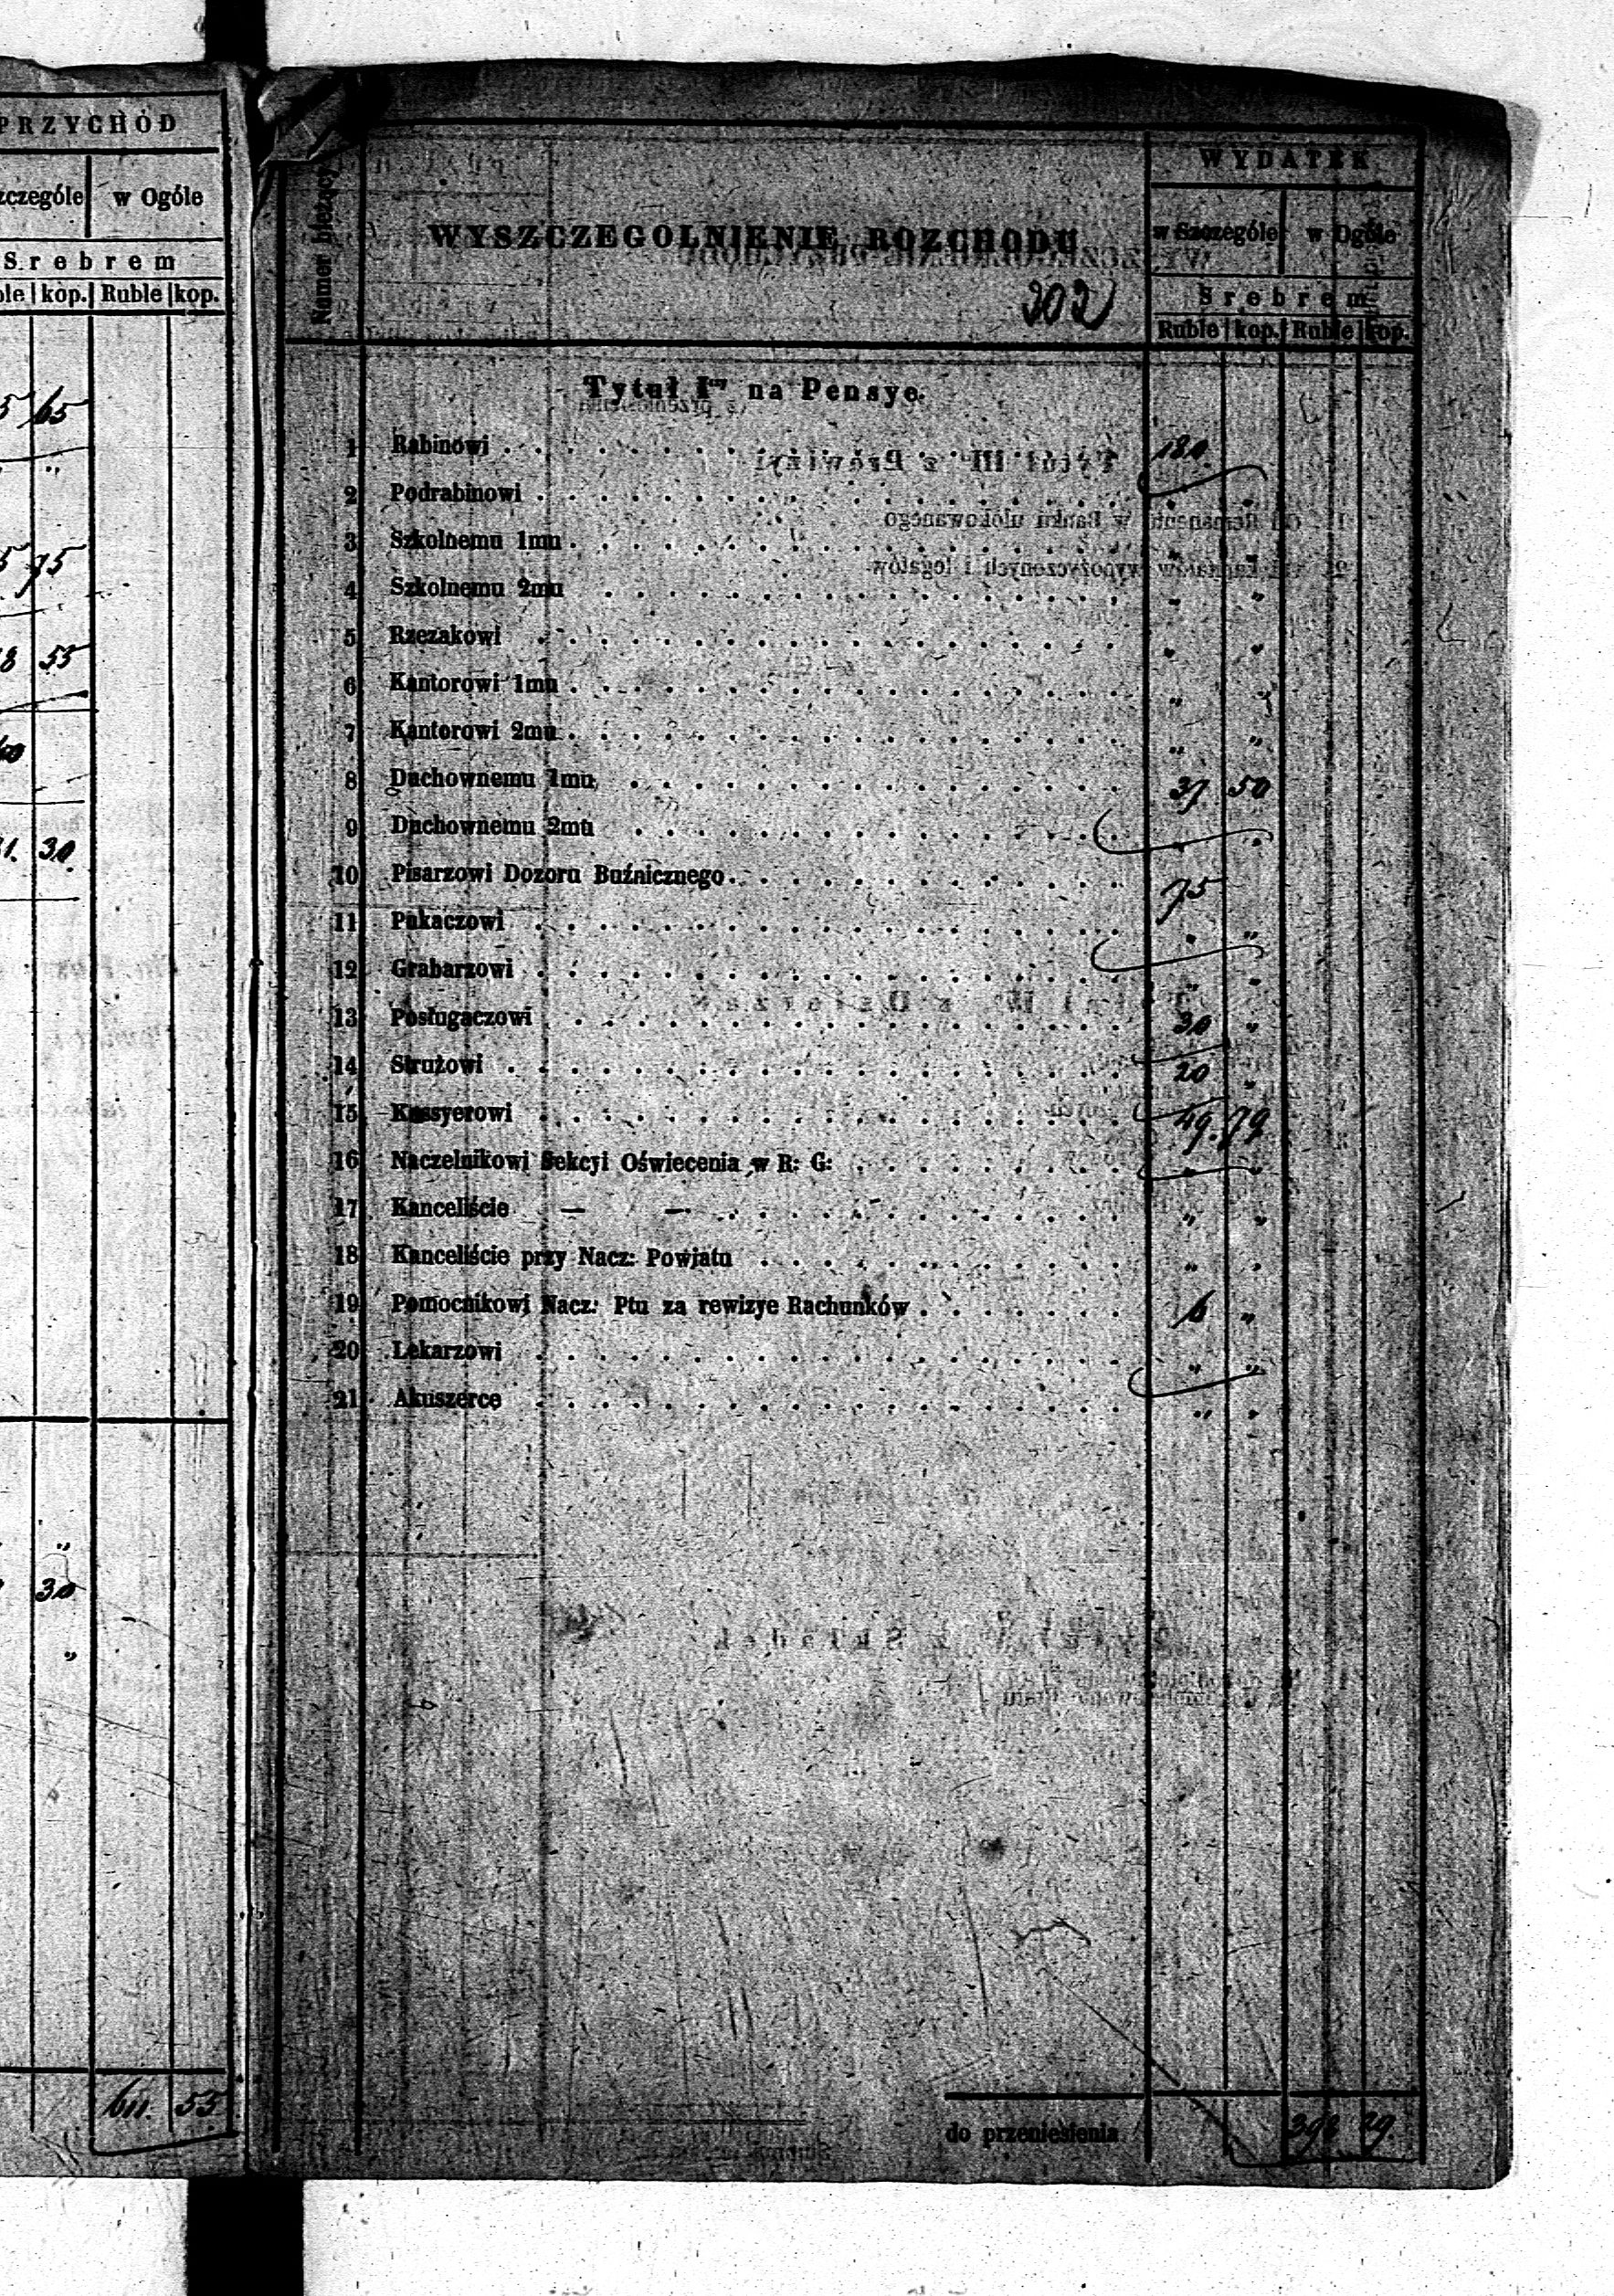 PRZYCHÓD
w Ogóle
Srebrem
kop. Ruble kop.
65
"
75
8 55
30
"
30
"
611. 55
Numer bieżący
WYSZCZEGOLNIENIE ROZCHODU
302
WYDATEK
w Szczególe w Ogóle
Srebrem
Ruble kop. Ruble kop.
Tytuł I na Pensye.
1 Rabinowi 180
2 Podrabinowi " "
3 Szkolnemu 1mu " "
4 Szkolnemu 2mu " "
5 Rzezakowi " "
6 Kantorowi 1mu " "
7 Kantorowi 2mu " "
8 Duchownemu 1mu 37 50
9 Duchownemu 2mu " "
10 Pisarzowi Dozoru Buźnicznego 75
11 Pukaczowi " "
12 Grabarzowi " "
13 Posługaczowi 30 "
14 Strużowi 20 "
15 Kassyerowi 49. 79
16 Naczelnikowi Sekcyi Oświecenia w R: G: " "
17 Kanceliście — — " "
18 Kanceliście przy Nacz: Powiatu " "
19 Pomocnikowi Nacz: Ptu za rewizye Rachunków 6 "
20 Lekarzowi " "
21 Akuszerce " "
do przeniesienia 398 29.